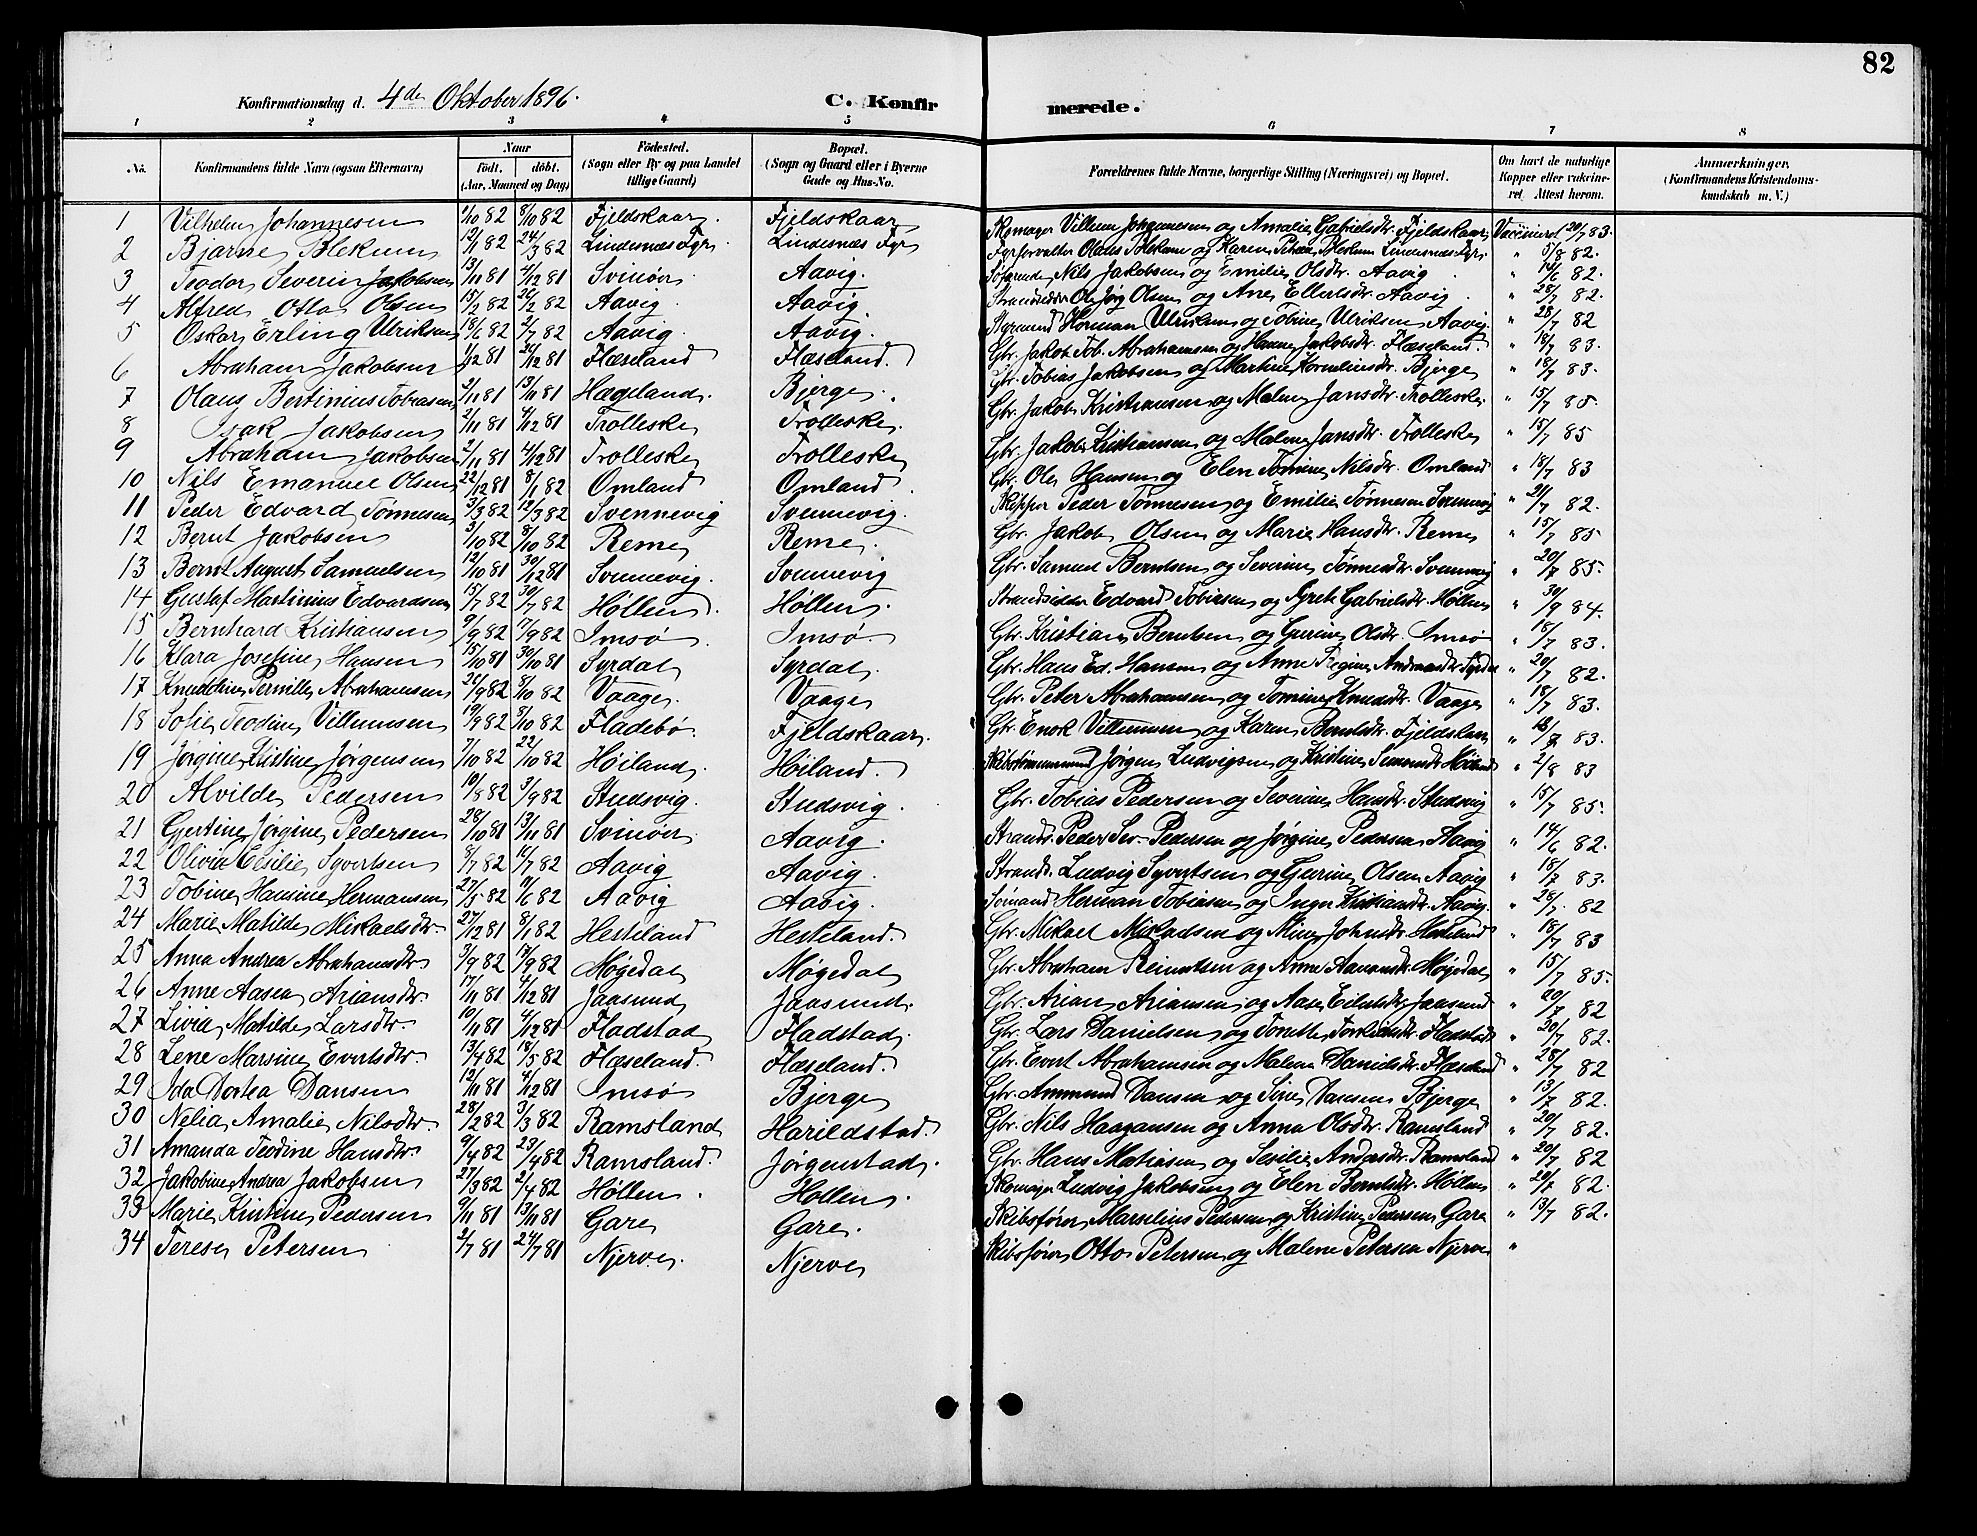 82
Konfirmationsdag d. 4de Oktober 1896. C. Konfir merede.
1 2 3 4 5 6 7 8
No. Konfirmandens fulde Navn (ogsaa Efternavn) Naar födt. döbt. (Aar, Maaned og Dag) Födested. (Sogn eller By og paa Landet tillige Gaard) Bopæl. (Sogn og Gaard eller i Byerne Gade og Hus-No. Forældrenes fulde Navne, borgerlige Stilling (Næringsvei) og Bopæl. Om havt de naturlige Kopper eller vakcineret Attest herom. Anmærkninger. (Konfirmandens Kristendomskundskab m. V.)
1 Vilhelm Johannesen 1/10 82 8/10 82 Fjeldskaar. Fjeldskaar Skomager Villum Johannesen og Amalie Gabrielsdtr. Fjeldskaar Vaccineret 20/7 83.
2 Bjarne Blekum 12/1 82 24/3 82 Lindesnæs Fyr. Lindesnæs Fyr Fyrforvalter Olaus Blekum og Karen Blekum Lindesnæs Fyr. " 5/8 82.
3 Teodor Severin Jakobsen 13/11 81 4/12 81 Svinør Aavig. Søfarende Nils Jakobsen og Emilie Olsdtr. Aavig " 14/6 82.
4 Alfred Otto Olsen 15/2 82 26/2 82 Aavig. Aavig. Strandsidder Ole Jørg Olsen og Ane Ellertsdtr. Aavig " 28/7 82.
5 Oskar Erling Ulriksen 18/6 82 2/7 82 Aavig. Aavig. Styrmand Herman Ulriksen og Tobine Ulriksen Aavig. " 28/7 82
6 Abraham Jakobsen 1/12 81 26/12 81 Flæseland Flæseland. Gbr. Jakob Tob. Abrahamsen og Hanne Jakobsdtr. Flæseland. " 18/7 83.
7 Olaus Bertinius Tobiassen 2/11 81 13/11 81 Hageland. Bjerge. Gbr. Tobias Jakobsen og Martine Korneliusdtr. Bjerge " 18/7 83.
8 Isak Jakobsen 2/11 81 4/12 81 Trolleske Trolleske. Gbr. Jakob Kristiansen og Malene Jansdtr. Trolleske " 15/7 85.
9 Abraham Jakobsen 2/11 81 4/12 81 Trolleske Trolleske Gbr. Jakob Kristiansen og Malene Jansdtr. Trolleske " 15/7 85
10 Nils Emanuel Olsen 22/12 81 8/1 82 Omland Omland Gbr. Ole Hansen og Elen Tomine Nilsdtr. Omland " 18/7 83
11 Peder Edvard Tønnesen 3/3 82 12/3 82 Svennevig Svennevig. Skipper Peder Tønnesen og Emilie Tønnesen Svennevig " 21/7 82.
12 Bernt Jakobsen 3/10 82 8/10 82 Reme Reme. Gbr. Jakob Olsen og Marie Hansdtr. Reme " 15/7 85
13 Bernt August Samuelsen 12/10 81 30/12 81 Svennevig. Svennevig Gbr. Samuel Berntsen og Severine Tønnesdtr. Svennevig " 20/7 85.
14 Gustaf Martinius Edvardsen 15/7 82 30/7 82 Høllen. Høllen. Strandsidder Edvard Tobiesen og Grete Gabrielsdtr. Høllen " 30/9 84.
15 Bernhard Kristiansen 9/9 82 17/9 82 Imsø. Imsø. Gbr. Kristian Berntsen og Gurine Olsdtr. Imsø " 18/7 83.
16 Klara Josefine Hansen 15/10 81 30/10 81 Syrdal Syrdal. Gbr. Hans Ed. Hansen og Anne Regine Andreasdtr. Syrdal " 20/7 82.
17 Knuddine Pernille Abrahamsen 26/9 82 8/10 82 Vaage. Vaage Gbr. Peter Abrahamsen og Tomine Knudsdtr. Vaage " 18/7 83.
18 Sofie Teodine Villumsen 19/9 82 8/10 82 Fladebø. Fjeldskaar. Gbr. Enok Villumsen og Karen Berntsdtr. Fjeldskaar " 18/7 83.
19 Jørgine Kristine Jørgensen 7/10 82 22/10 82 Høiland. Høiland. Skibstømmermand Jørgen Ludvigsen og Kristine Simonsdtr Høiland " 2/8 83
20 Alvilde Pedersen 19/8 82 3/9 82 Studsvig. Studsvig. Gbr. Tobias Pedersen og Severine Hansdtr. Studsvig " 15/7 85.
21 Gertine Jørgine Pedersen 28/10 81 13/11 81 Svinør. Aavig. Strands. Peder Sev. Pedersen og Jørgine Pedersen Aavig " 14/6 82.
22 Olivia Cesilie Syvertsen 8/7 82 16/7 82 Aavig Aavig. Strands. Ludvig Syvertsen og Gurine Olsen Aavig " 18/7 83.
23 Tobine Hansine Hermansen 27/5 82 9/6 82 Aavig Aavig. Sømand Herman Tobiasen og Inger Kristiansdtr. Aavig. " 28/7 82
24 Marie Matilde Mikaelsdtr. 27/12 81 8/1 82 Hesteland Hesteland. Gbr. Mikael Mikaelsen og Stine Johnsdtr. Hesteland " 18/7 83
25 Anna Andrea Abrahamsdtr 3/9 82 17/9 82 Møgedal Møgedal Gbr. Abraham Reinertsen og Anne Aanonsdtr. Møgedal " 15/7 85.
26 Anne Aasen Ariansdtr. 17/11 81 4/12 81 Jaasund Jaasund. Gbr. Arian Ariansen og Aase Eilertsdtr. Jaasund " 20/7 82
27 Livia Matilde Larsdtr. 10/11 81 4/12 81 Fladstad Fladstad. Gbr. Lars Danielsen og Tonette Torkildsdtr. Fladstad " 20/7 82.
28 Lene Marsine Evertsdtr. 13/4 82 18/5 82 Flæseland. Flæseland. Gbr. Evert Abrahamsen og Malene Danielsdtr. Flæseland " 28/7 82
29 Ida Dortea Dansen 12/11 81 4/12 81 Imsø Bjerge Gbr. Ammund Dansen og Sine Dansen Bjerge " 13/7 82.
30 Nelia Amalie Nilsdtr. 28/2 82 3/3 82 Ramsland Harildstad. Gbr. Nils Haagansen og Anna Olsdtr. Ramsland " 20/7 82.
31 Amanda Teodine Hansdtr. 9/4 82 23/4 82 Ramsland. Jørgenstad. Gbr. Hans Matiasen og Sesilie Andersdtr. Ramsland " 20/7 82
32 Jakobine Andrea Jakobsen 27/3 82 2/4 82 Høllen. Høllen. Skomager Ludvig Jakobsen og Elen Berntsdtr. Høllen " 21/7 82.
33 Marie Kristine Pedersen 9/11 81 13/11 81 Gare Gare. Skibsfører Marselius Pedersen og Kristine Pedersen Gare " 13/7 82.
34 Terese Petersen 2/7 81 24/7 81 Njerve. Njerve Skibsfører Otto Petersen og Malene Petersen Njerve "